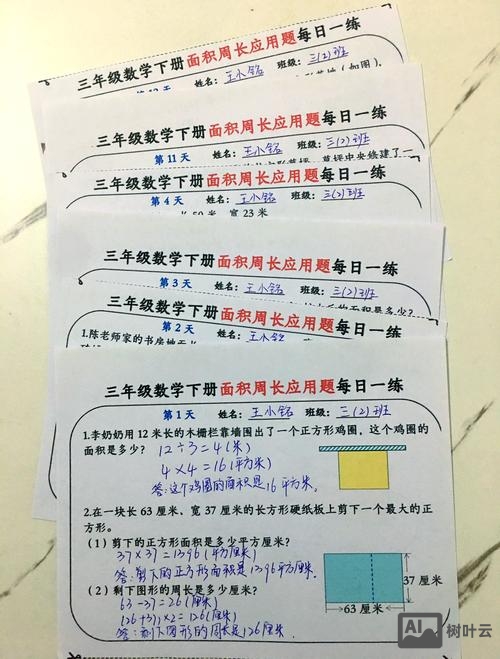 三年级数学下册面积周长应用题每日一练
姓名：王小铭 班级：三(2)班
三年级数学下册面积周长应用题每日一练
第 11 天 姓名：王小铭 班级：三(2)班
草坪中央修建了一
三年级数学下册面积周长应用题每日一练
第 4 天 姓名：王小铭 班级：三(2)班
宽 23 米
三年级数学下册面积周长应用题每日一练
第 3 天 姓名：王小铭 班级：三(2)班
的面积是多少？
三年级数学下册面积周长应用题每日一练
第 2 天 姓名：王小铭
1.陈老师家的书房地
三年级数学下册面积周长应用题每日一练
第 1 天 姓名：王小铭 班级：三(2)班
1.李奶奶用 12 米长的木栅栏靠墙围出了一个正方形鸡圈，这个鸡圈的
面积是多少？ 12÷3=4(米)
4×4=16(平方米)
答:这个鸡圈的面积是16平方米。
2.在一块长 63 厘米、宽 37 厘米的长方形硬纸板上剪下一个最大的正
方形。
（1）剪下的正方形面积是多少平方厘米？
37×37=1396(平方厘米)
答:剪下的正方形面积是1396平方厘米
（2）剩下图形的周长是多少厘米？
63-37=26(厘米)
(26+37)×2=126(厘米)
答:剩下图形的周长是126厘米.
37 厘米
63 厘米
AI 树叶云